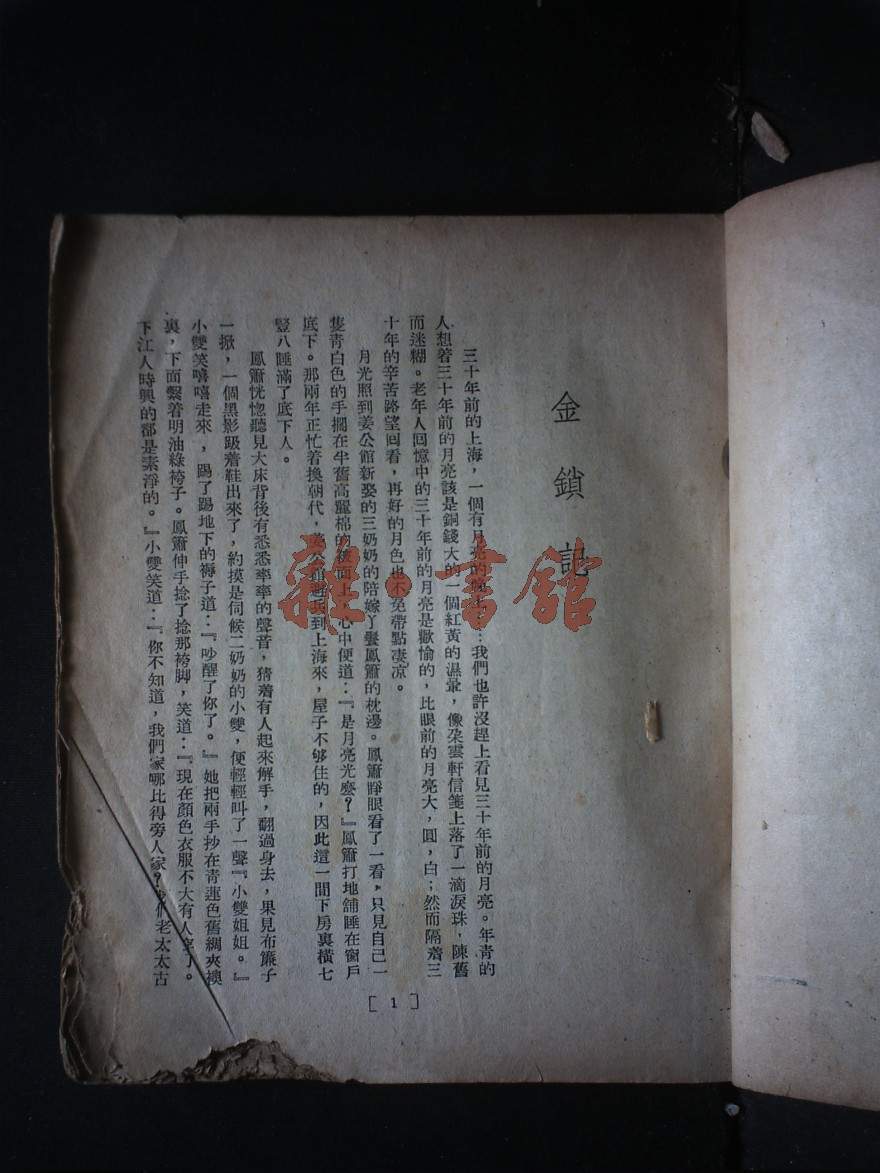 金鎖記
三十年前的上海，一個有月亮的晚上……我們也許沒趕上看見三十年前的月亮。年青的
人想着三十年前的月亮該是銅錢大的一個紅黃的濕暈，像朶雲軒信箋上落了一滴淚珠，陳舊
而迷糊。老年人回憶中的三十年前的月亮是歡愉的，比眼前的月亮大，圓，白；然而隔着三
十年的辛苦路望回看，再好的月色也不免帶點凄凉。
月光照到姜公館新娶的三奶奶的陪嫁丫鬟鳳簫的枕邊。鳳簫睜眼看了一看，只見自己一
隻青白色的手擱在半舊高麗棉的被面上，心中便道：『是月亮光麽？』鳳簫打地舖睡在窗戶
底下。那兩年正忙着換朝代，姜公館避兵到上海來，屋子不够住的，因此這一間下房裏橫七
豎八睡滿了底下人。
鳳簫恍惚聽見大床背後有悉悉率率的聲音，猜着有人起來解手，翻過身去，果見布簾子
一掀，一個黑影趿着鞋出來了，約摸是伺候二奶奶的小雙，便輕輕叫了一聲『小雙姐姐。』
小雙笑嘻嘻走來，踢了踢地下的褥子道：『吵醒了你了。』她把兩手抄在青蓮色舊綢夾襖
裏，下面繫着明油綠袴子。鳳簫伸手捻了捻那袴脚，笑道：『現在顏色衣服不大有人穿了。
下江人時興的都是素淨的。』小雙笑道：『你不知道，我們家哪比得旁人家？我們老太太古
[1]
雜·書館